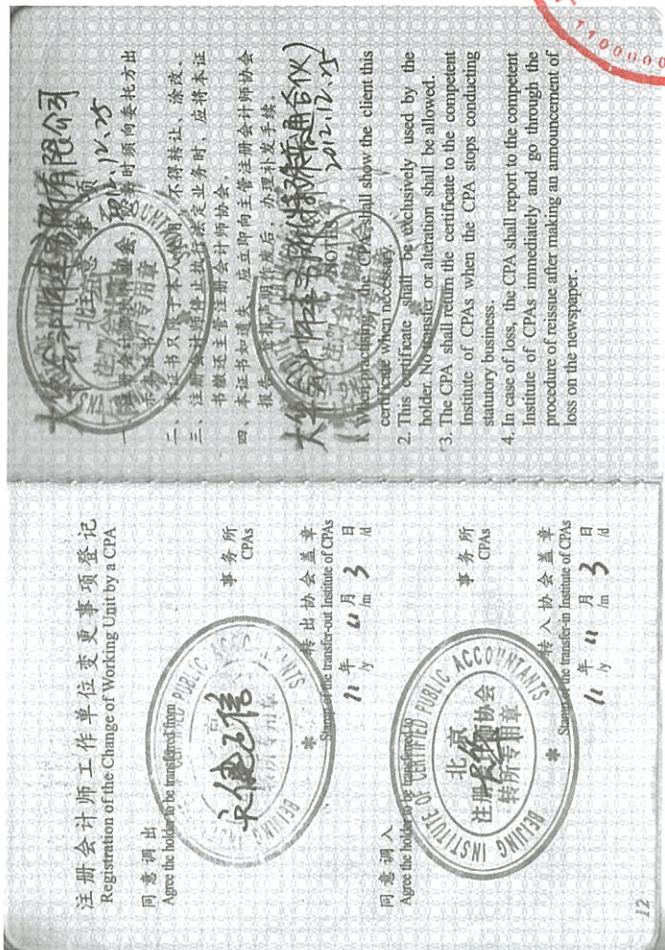 注册会计师工作单位变更事项登记
Registration of the Change of Working Unit by a CPA
同意调出
Agree the holder to be transferred from
事务所
CPAs
转出协会盖章
Stamp of the transfer-out Institute of CPAs
11年 11月 3日
/y /m /d
同意调入
Agree the holder to be transferred to
BEIJING INSTITUTE OF CERTIFIED PUBLIC ACCOUNTANTS
北京
注册会计师协会
转所专用章
事务所
CPAs
转入协会盖章
Stamp of the transfer-in Institute of CPAs
11年 11月 3日
/y /m /d
12
大华会计师事务所有限公司
2012.12.25
注意事项
一、注册会计师执行业务时须向委托方出
示本证书。
二、本证书只限于本人使用，不得转让、涂改。
三、注册会计师停止执行法定业务时，应将本证
书缴还主管注册会计师协会。
四、本证书如遗失，应立即向主管注册会计师协会
报告，登报声明作废后，办理补发手续。
大华会计师事务所(特殊普通合伙)
2012.12.25
NOTES
1. When practising, the CPA shall show the client this
certificate when necessary.
2. This certificate shall be exclusively used by the
holder. No transfer or alteration shall be allowed.
3. The CPA shall return the certificate to the competent
Institute of CPAs when the CPA stops conducting
statutory business.
4. In case of loss, the CPA shall report to the competent
Institute of CPAs immediately and go through the
procedure of reissue after making an announcement of
loss on the newspaper.
1100000